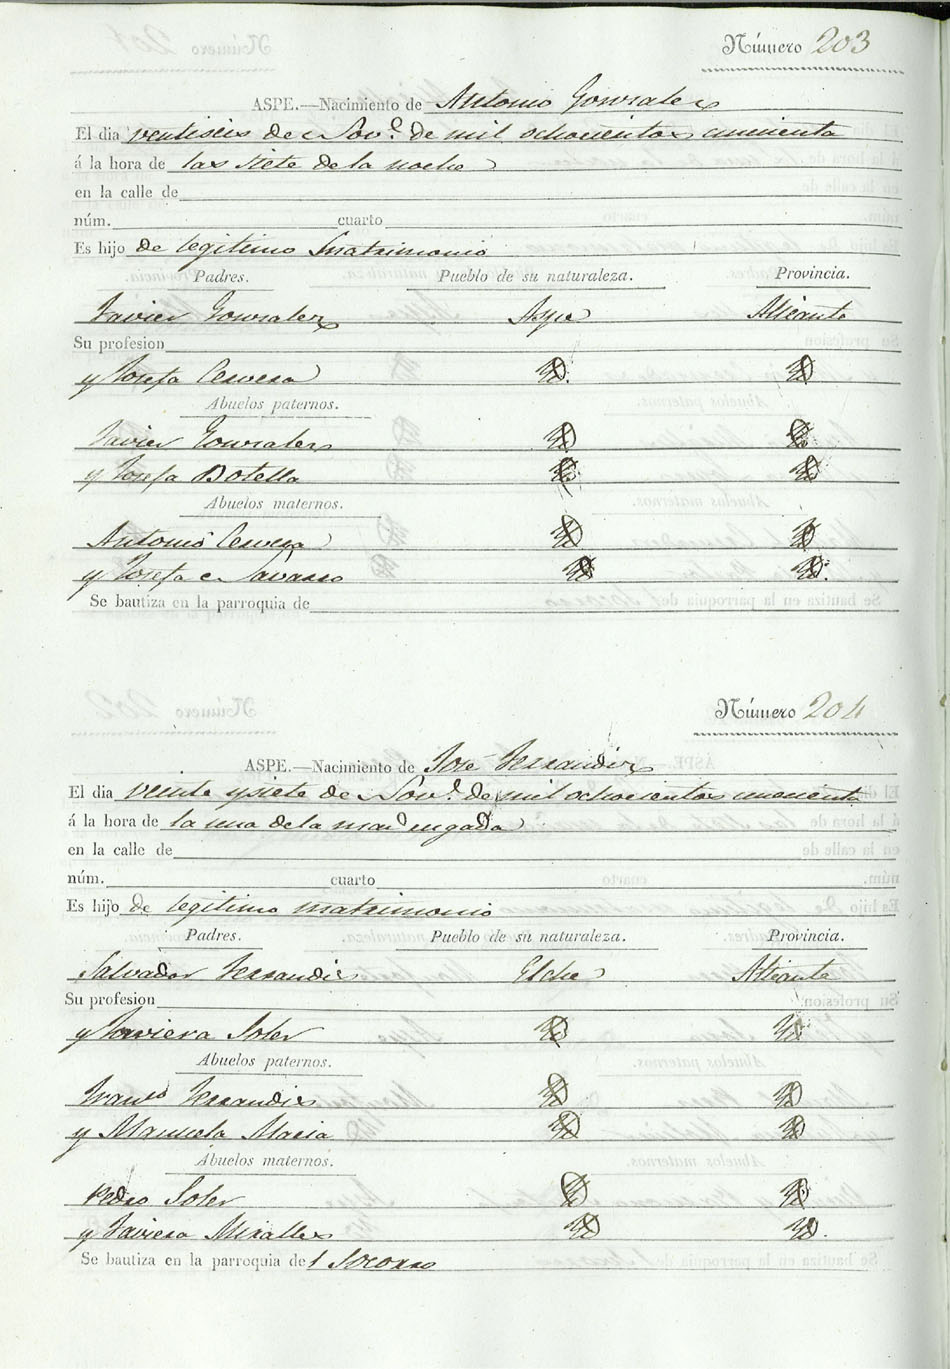 Número 203
ASPE.—Nacimiento de Antonio Gonzalez
El dia ventiseis de Nov.e de mil ochocientos cincuenta
á la hora de las siete de la noche
en la calle de
núm. cuarto
Es hijo de legitimo matrimonio
Padres. Pueblo de su naturaleza. Provincia.
Javier Gonzalez Aspe Alicante
Su profesion
y Josefa Cervera
Abuelos paternos.
Javier Gonzalez
y Josefa Botella
Abuelos maternos.
Antonio Cervera
y Josefa Navarro
Se bautiza en la parroquia de
Número 204
ASPE.—Nacimiento de José Ferrandiz
El dia veinte y siete de Nov.e de mil ochocientos cincuenta
á la hora de la una de la madrugada
en la calle de
núm. cuarto
Es hijo de legitimo matrimonio
Padres. Pueblo de su naturaleza. Provincia.
Salvador Ferrandiz Elche Alicante
Su profesion
y Javiera Soler
Abuelos paternos.
Franco Ferrandiz
y Manuela Macia
Abuelos maternos.
Pedro Soler
y Javiera Miralles
Se bautiza en la parroquia del Socorro